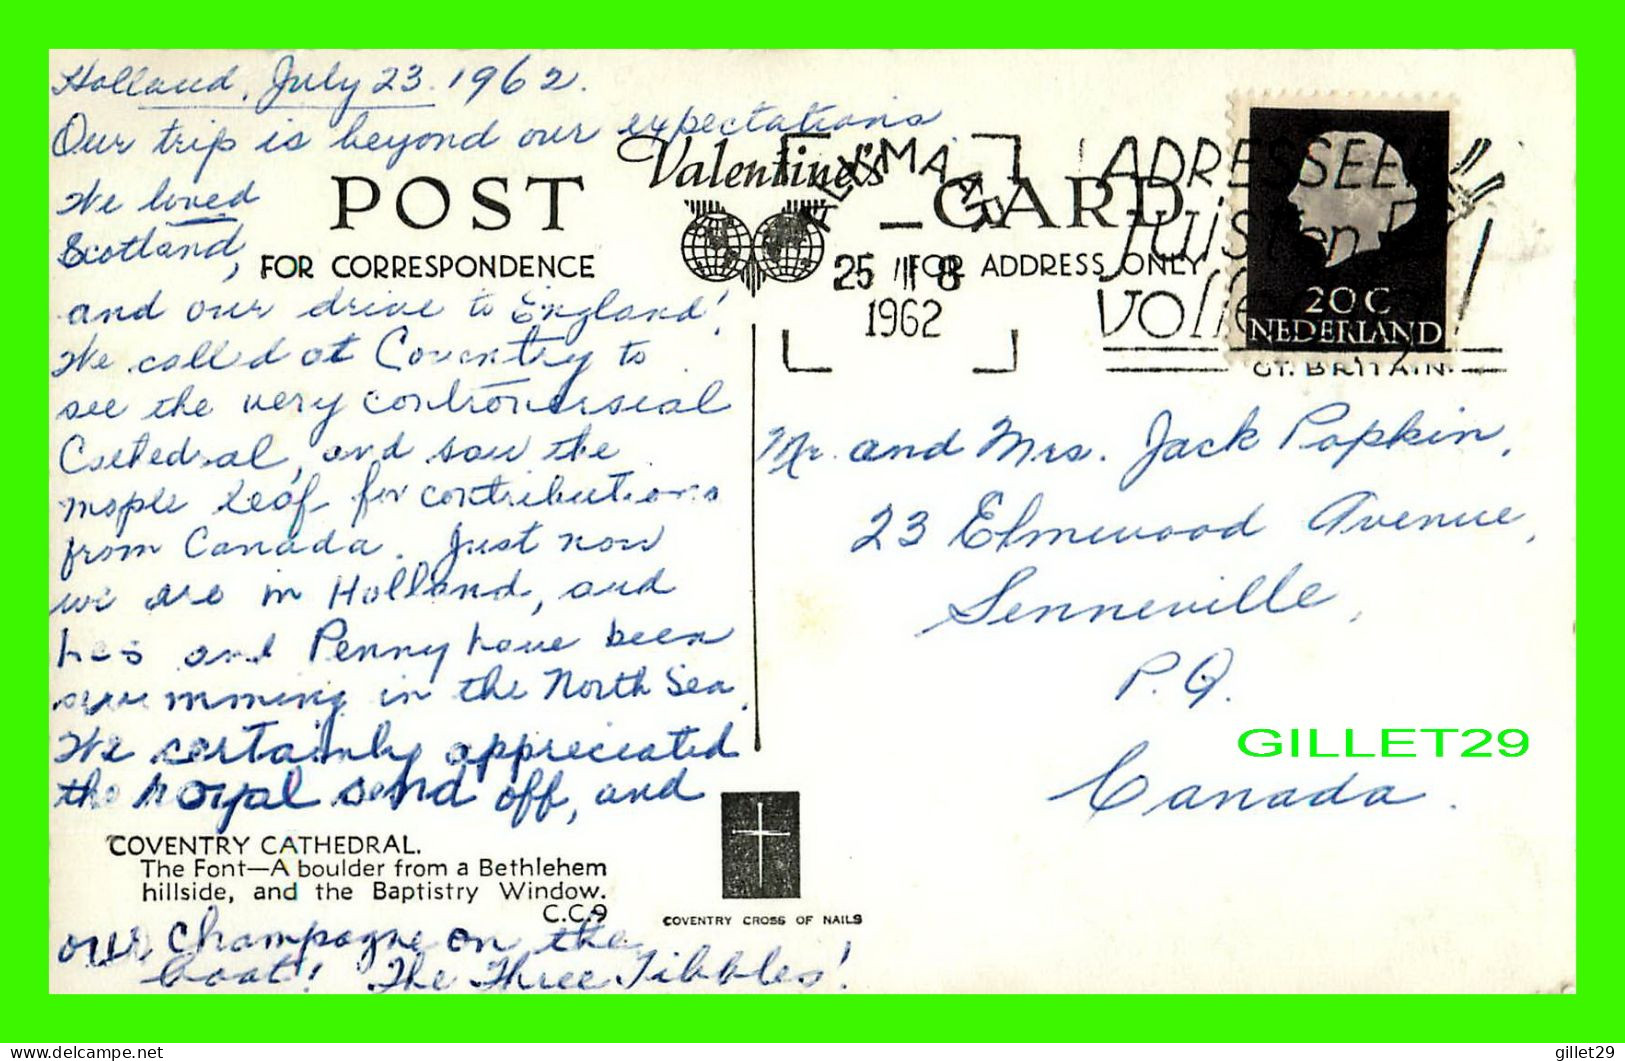 Holland, July 23. 1962.
Our trip is beyond our expectations.
We loved
Scotland,
and our drive to England!
We called at Coventry to
see the very controversial
Cathedral, and saw the
maple leaf for contributions
from Canada. Just now
we are in Holland, and
and Penny have been
swimming in the North Sea.
We certainly appreciated
the royal send off, and
our Champagne on the
boat! The Three Tibbles!
POST Valentine's CARD
FOR CORRESPONDENCE
FOR ADDRESS ONLY
ALKMAAR
25 8
1962
ADRESSEER
juist en
GT. BRITAIN.
20 C
NEDERLAND
Mr. and Mrs. Jack Popkin,
23 Elmwood Avenue,
Senneville,
P.Q.
Canada.
GILLET29
COVENTRY CATHEDRAL.
The Font—A boulder from a Bethlehem
hillside, and the Baptistry Window.
C.C.9
COVENTRY CROSS OF NAILS
delcampe.net
gillet29